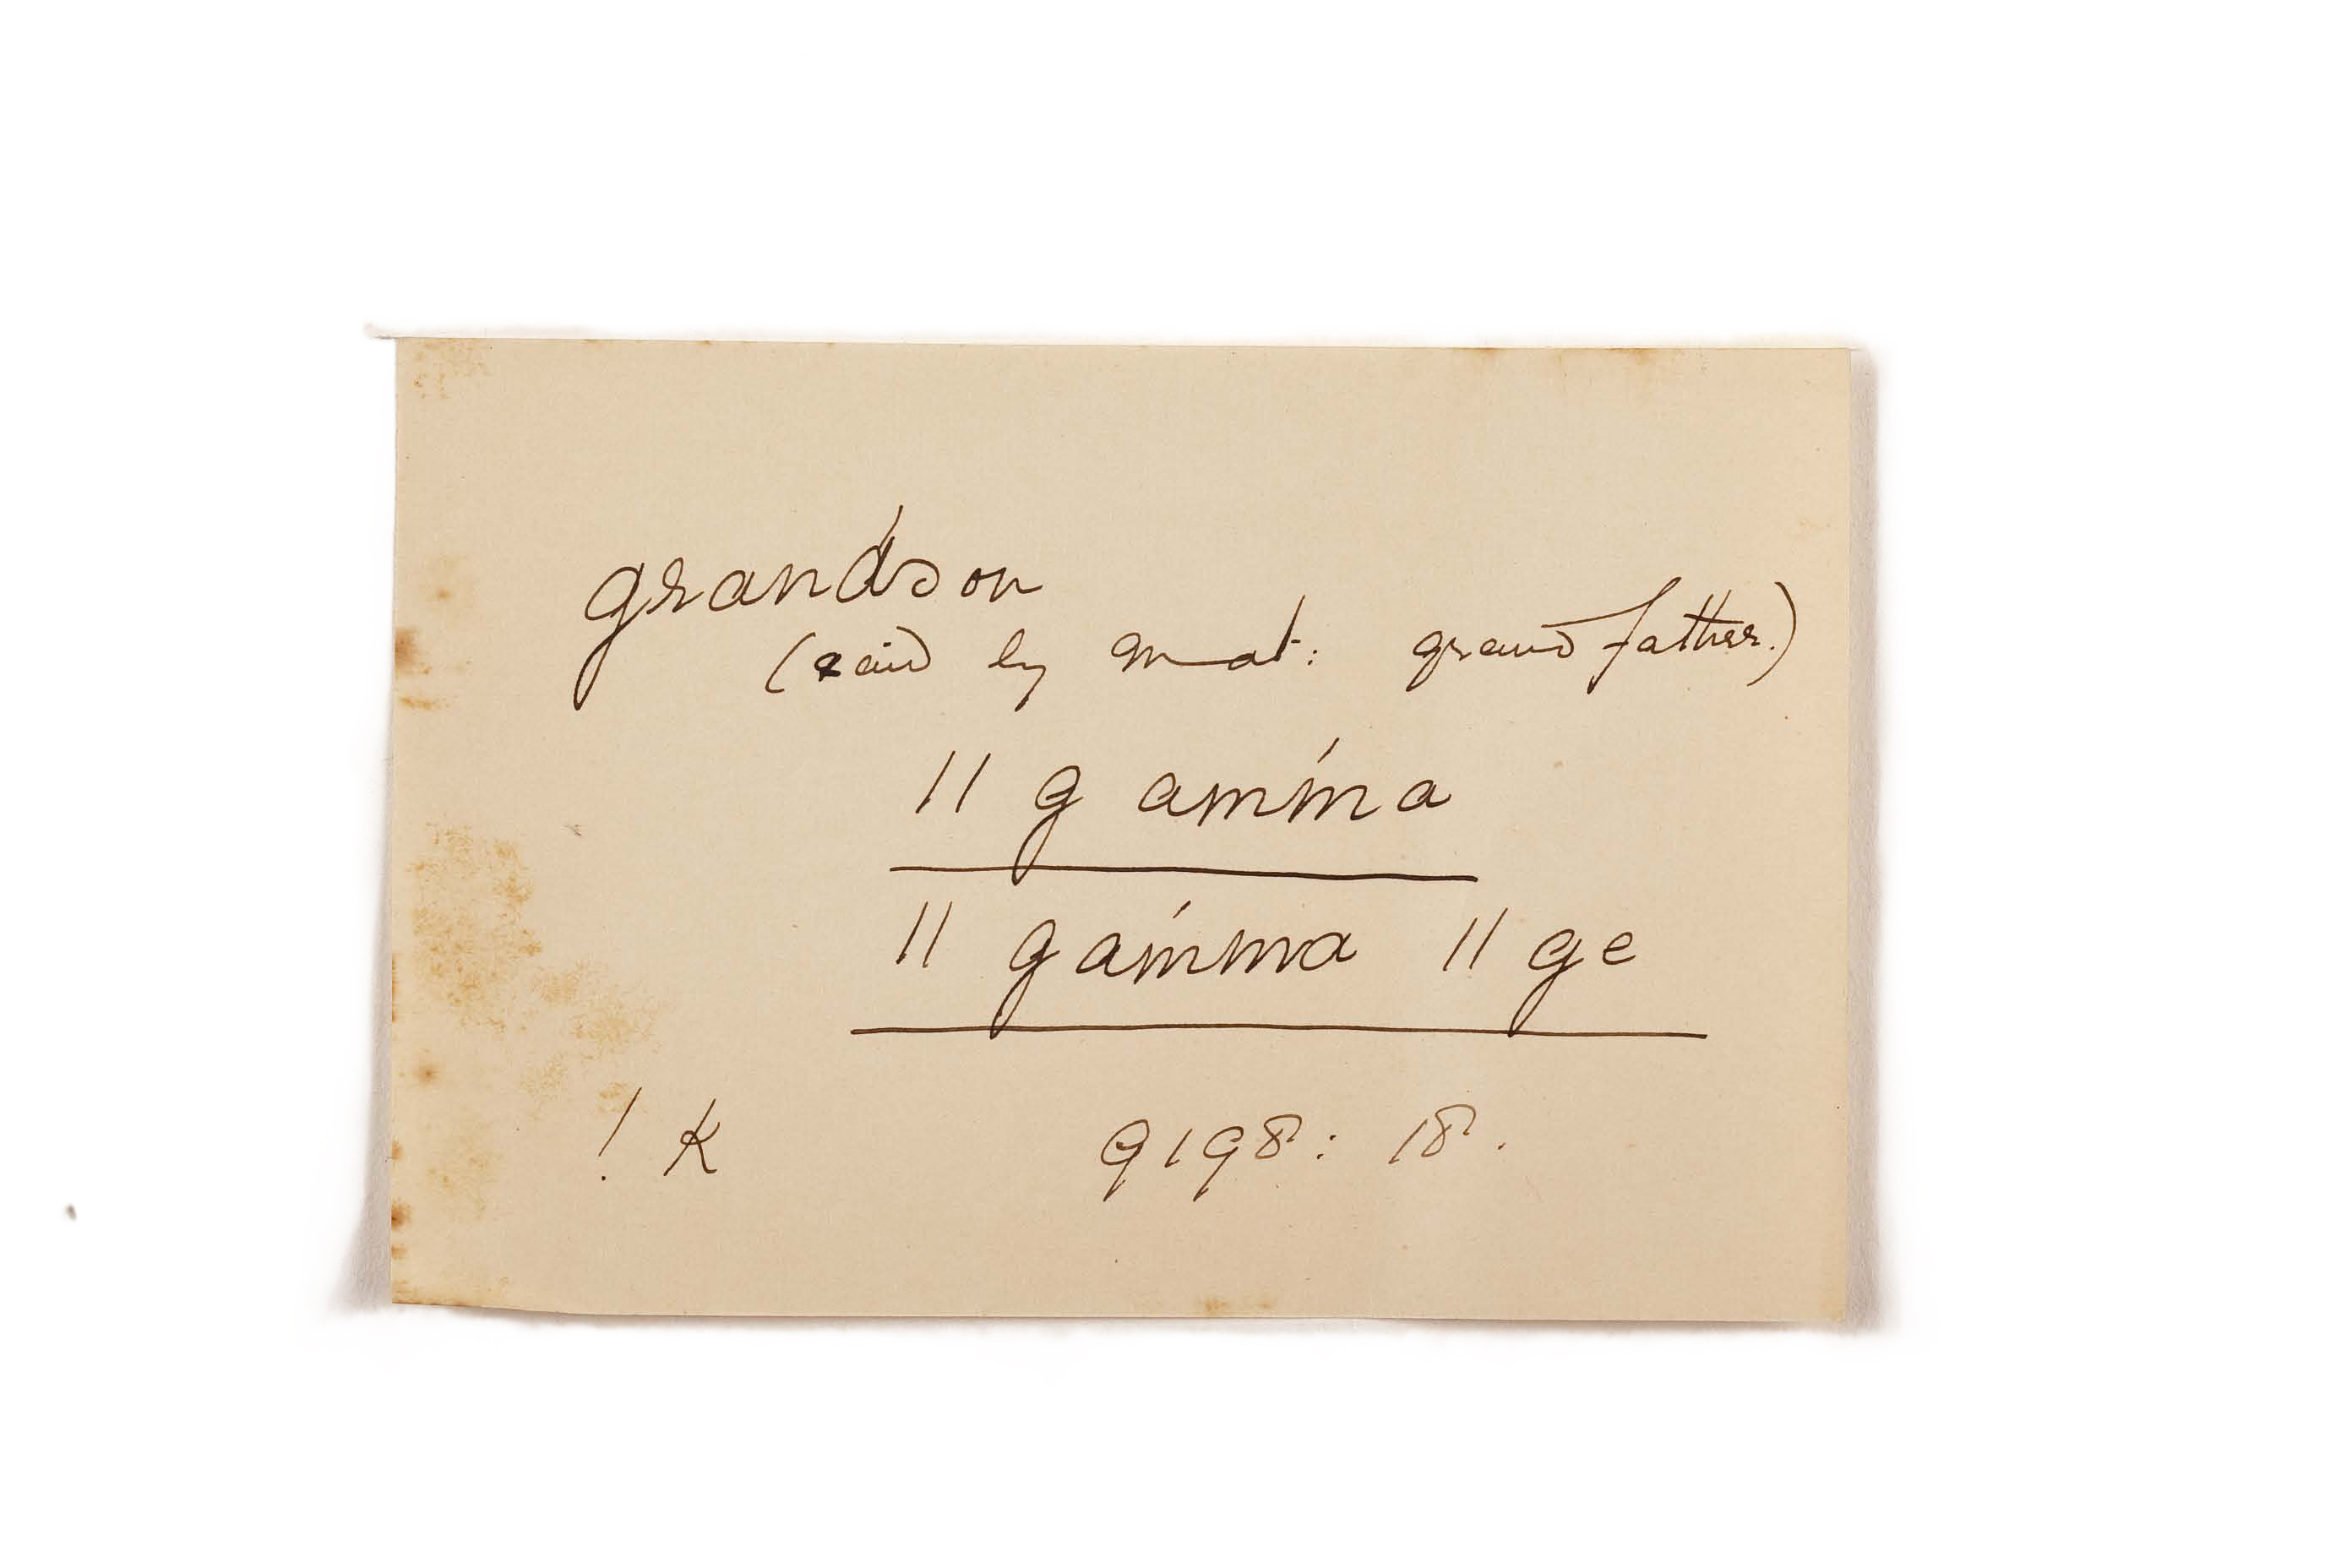 grandson
(said by mat: grandfather.)
|| g amḿa
|| gaḿma || ge
! k 9198: 18.